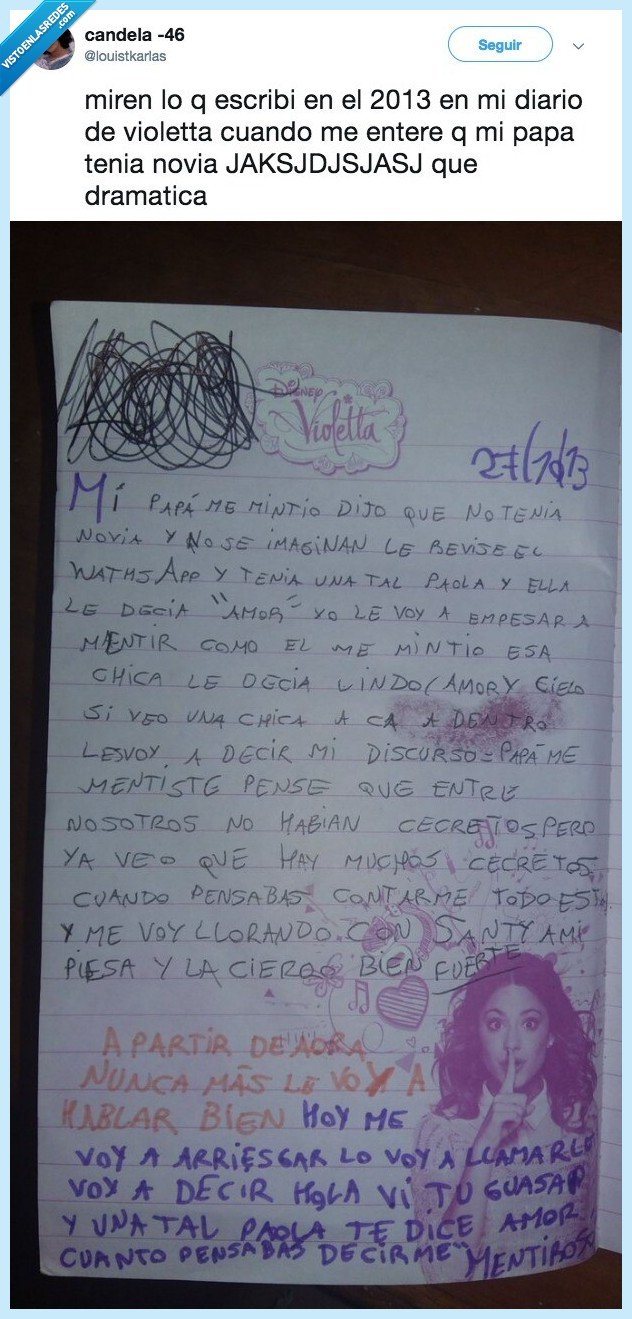 VISTOENLASREDES
.com
candela -46
@louistkarlas
Seguir
miren lo q escribi en el 2013 en mi diario
de violetta cuando me entere q mi papa
tenia novia JAKSJDJSJASJ que
dramatica
Disney
Violetta
27/10/13
MÍ PAPÁ ME MINTIO DIJO QUE NO TENIA
NOVIA Y NO SE IMAGINAN LE REVISE EL
WATHSAPP Y TENIA UNA TAL PAOLA Y ELLA
LE DECIA "AMOR" YO LE VOY A EMPESAR A
MENTIR COMO EL ME MINTIO ESA
CHICA LE DECIA LINDO, AMOR Y CIELO
SI VEO UNA CHICA A CA A DENTRO
LES VOY A DECIR MI DISCURSO = PAPÁ ME
MENTISTE PENSE QUE ENTRE
NOSOTROS NO HABIAN CECRETOS PERO
YA VEO QUE HAY MUCHOS CECRETOS
CUANDO PENSABAS CONTARME TODO ESTO
Y ME VOY LLORANDO CON SANTY A MI
PIESA Y LA CIERRO BIEN FUERTE
A PARTIR DE AORA
NUNCA MÁS LE VOY A
HABLAR BIEN HOY ME
VOY A ARRIESGAR LO VOY A LLAMARLE
VOY A DECIR HOLA VI TU GUASAP
Y UNA TAL PAOLA TE DICE AMOR
CUANTO PENSABAS DECIRME" MENTIROSO